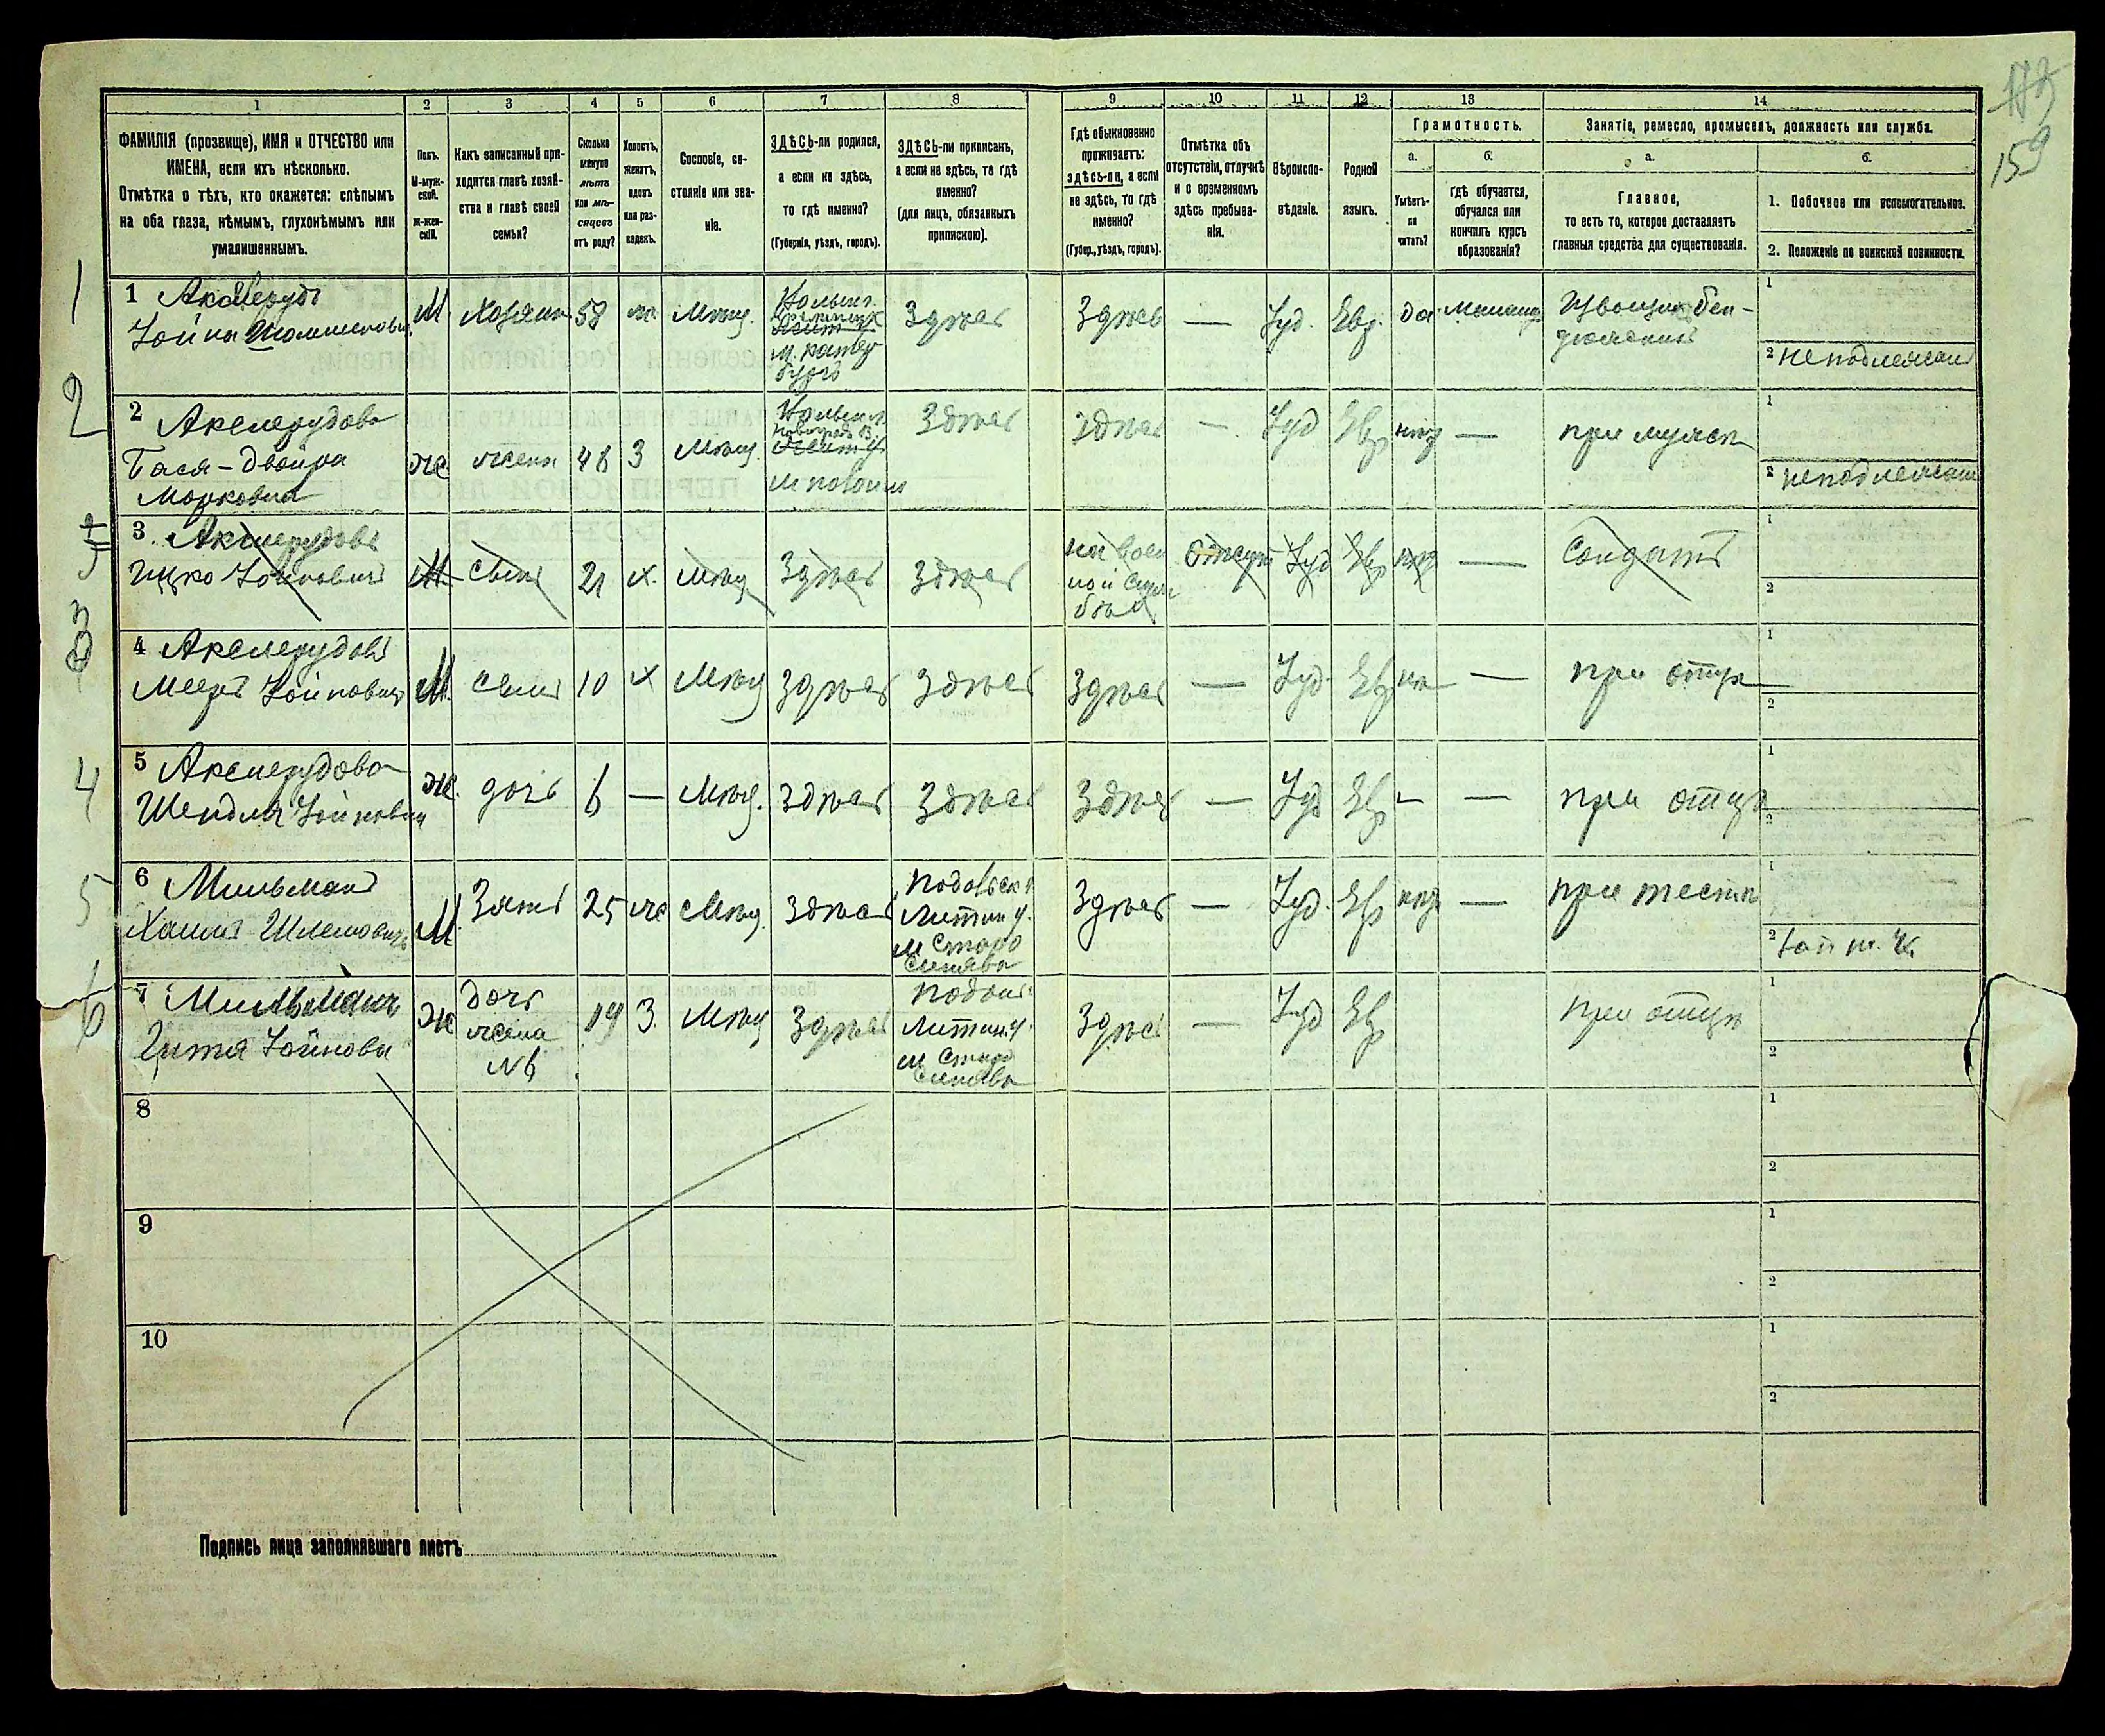 173
159
1 2 3 4 5 6 7 8 9 10 11 12 13 14
ФАМИЛІЯ (прозвище), ИМЯ и ОТЧЕСТВО или
ИМЕНА, если ихъ нѣсколько.
Отмѣтка о тѣхъ, кто окажется: слѣпымъ
на оба глаза, нѣмымъ, глухонѣмымъ или
умалишеннымъ.
Полъ.
М-муж-
ской.
ж-жен-
скій.
Какъ записанный при-
ходится главѣ хозяй-
ства и главѣ своей
семьи?
Сколько
минуло
лѣтъ
или мѣ-
сяцевъ
отъ роду?
Холостъ,
женатъ,
вдовъ
или раз-
веденъ.
Сословіе, со-
стояніе или зва-
ніе.
ЗДѢСЬ-ли родился,
а если не здѣсь,
то гдѣ именно?
(Губернія, уѣздъ, городъ).
ЗДѢСЬ-ли приписанъ,
а если не здѣсь, то гдѣ
именно?
(для лицъ, обязанныхъ
припискою).
Гдѣ обыкновенно
проживаетъ:
здѣсь-ли, а если
не здѣсь, то гдѣ
именно?
(Губер., уѣздъ, городъ).
Отмѣтка объ
отсутствіи, отлучкѣ
и о временномъ
здѣсь пребыва-
ніи.
Вѣроиспо-
вѣданіе.
Родной
языкъ.
Грамотность.
а.
Умѣетъ-
ли
читать?
б.
гдѣ обучается,
обучался или
кончилъ курсъ
образованія?
Занятіе, ремесло, промыселъ, должность или служба.
а.
Главное,
то есть то, которое доставляетъ
главныя средства для существованія.
б.
1. Побочное или вспомогательное.
2. Положеніе по воинской повинности.
1
1 Акселрудъ
Іойна
М. Хозяинъ 58 ж. Мѣщ.
Волынс.
м.
Здѣсь Здѣсь — Іуд. Евр. да
Извощик
1
2 неподлежит
2
2 Акселрудова
Бася-Двойра
Морковна
же жена 48 З Мѣщ.
Волынс.
м
Здѣсь Здѣсь — Іуд Евр нѣт —
при мужѣ
1
2 неподлежит
3 Акселрудовъ
Ицко Іойновичъ
М сынъ 21 х. Мѣщ Здѣсь Здѣсь
на воен
ной служ
бѣ
Отсут Іуд Евр нѣт — Солдатъ
1
2
3
4 Акселрудовъ
Мееръ Іойновичъ
М. сынъ 10 х Мѣщ Здѣсь Здѣсь Здѣсь — Іуд. Евр не — при отцѣ
1
2
4
5 Акселрудова
Шейдля Іойновна
же. дочь 6 — Мѣщ. Здѣсь Здѣсь Здѣсь — Іуд Евр — — при отцѣ
1
2
5
6 Мильманъ
Хаимъ Шлемовичъ
М. Зять 25 же Мѣщ. Здѣсь
Подольск
Литин у.
м Старо
Синява
Здѣсь — Іуд. Евр нѣт — при тестѣ
1
2
6
7 Мильманъ
Гитя Іойнова
же
дочь
жена
№6
19 З. Мѣщ Здѣсь
Подоль
Литин. у.
м Старо
Синява
Здѣсь — Іуд Евр при отцѣ
1
2
8
1
2
9
1
2
10
1
2
Подпись лица заполнявшаго листъ